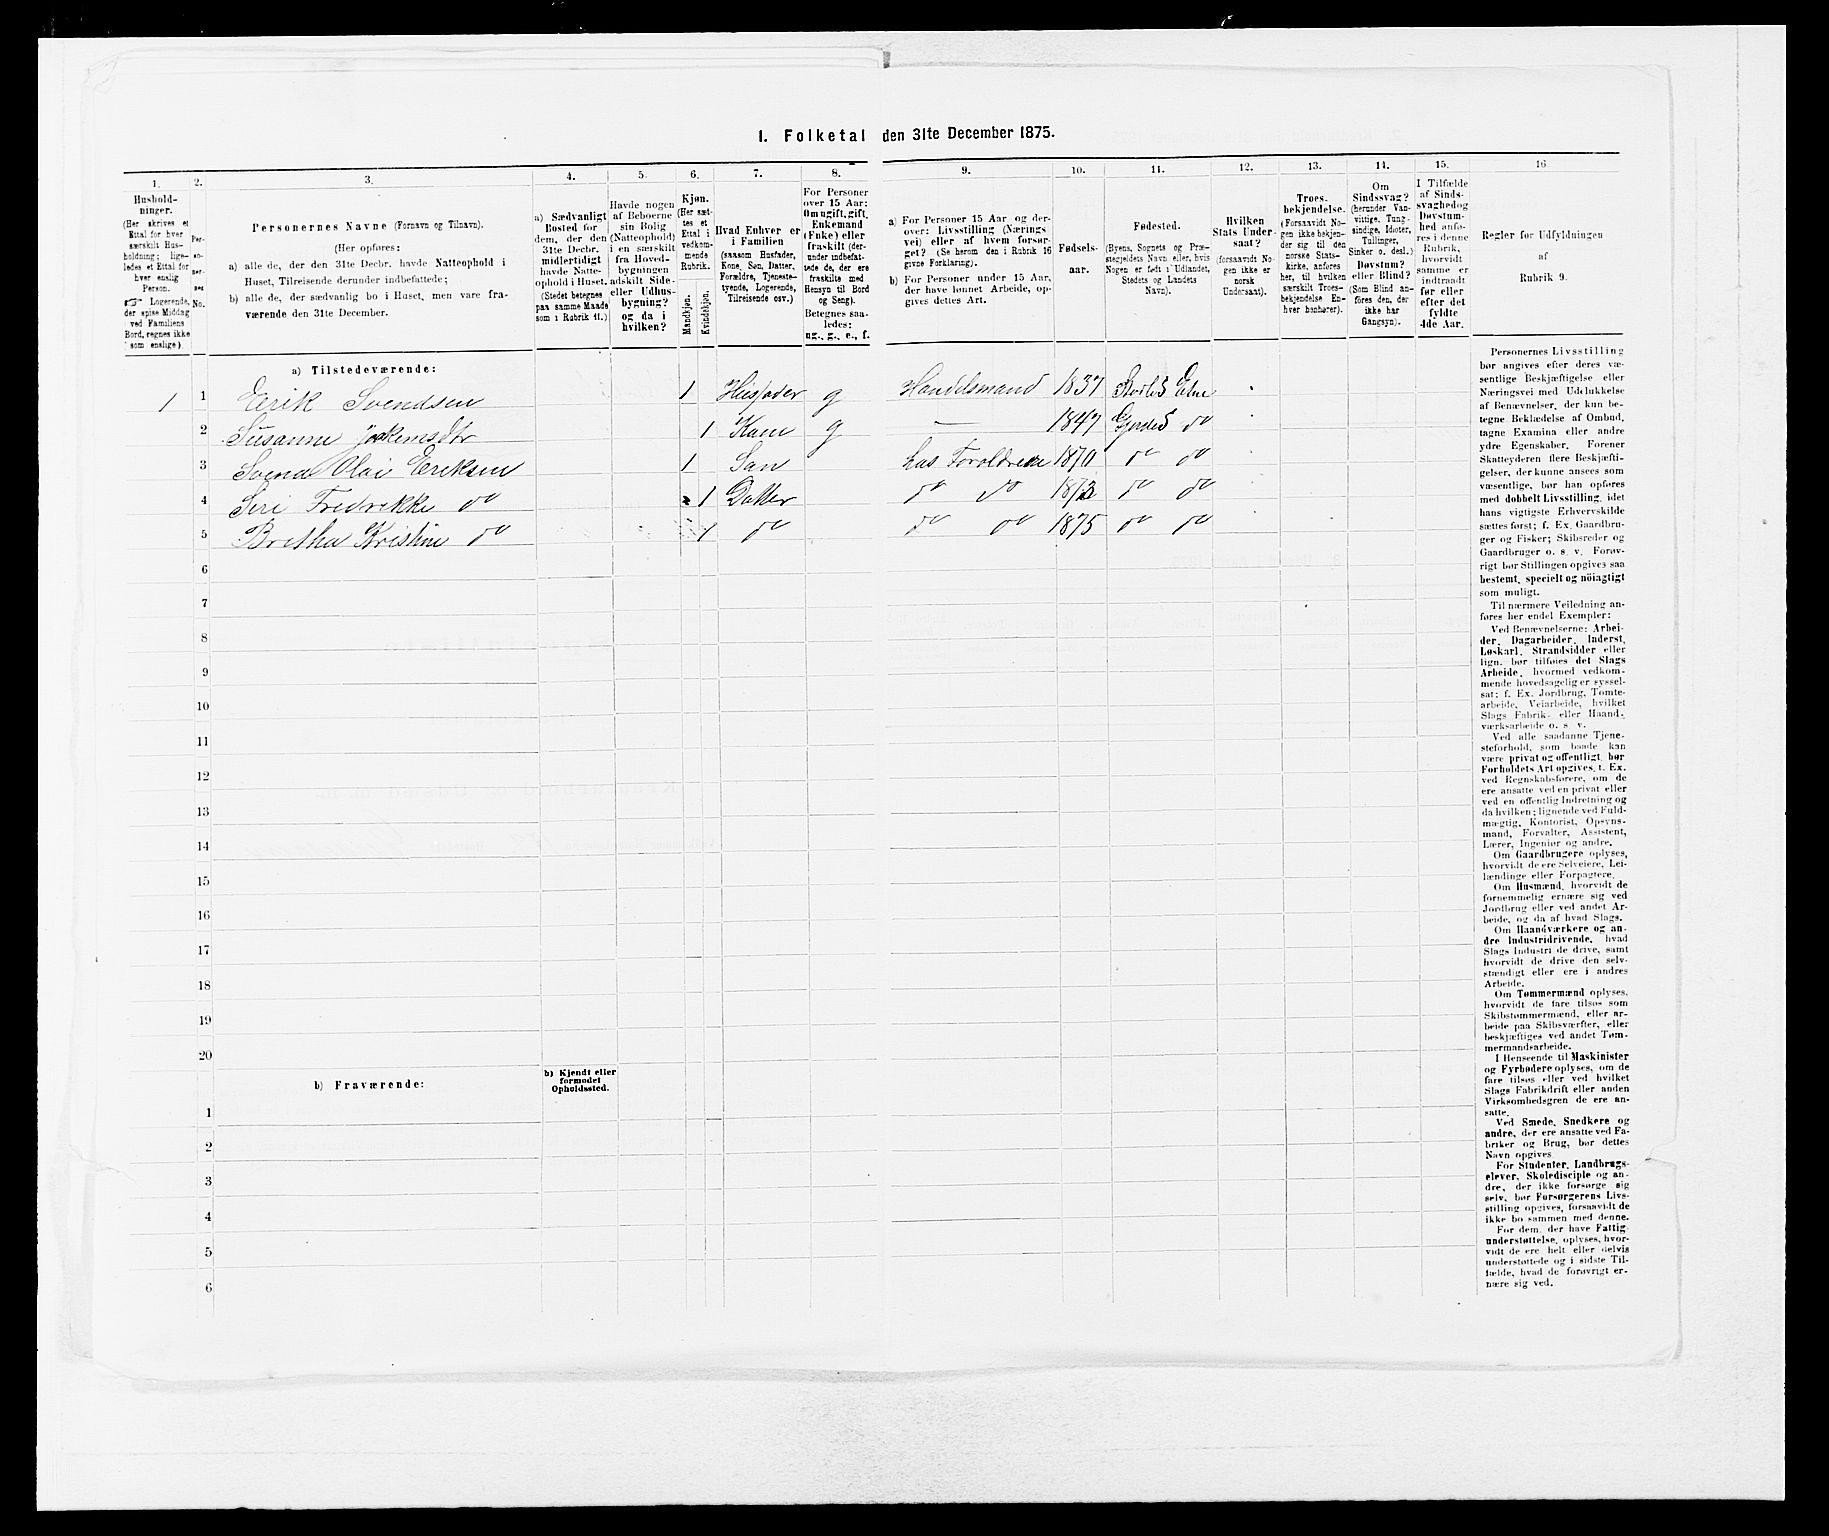 1. Folketal den 31te December 1875.
1. 2. 3. 4. 5. 6. 7. 8. 9. 10. 11. 12. 13. 14. 15. 16
Hushold-
ninger.
(Her skrives et
Ettal for hver
særskilt Hus-
holdning; lige-
ledes et Ettal for
hver enslig
Person.
☞ Logerende,
der spise Middag
ved Familiens
Bord, regnes ikke
som enslige).
Per-
so-
ner-
nes
No.
Personernes Navne (Fornavn og Tilnavn).
(Her opføres:
a) alle de, der den 31te Decbr. havde Natteophold i
Huset, Tilreisende derunder indbefattede;
b) alle de, der sædvanlig bo i Huset, men vare fra-
værende den 31te December.
a) Sædvanligt
Bosted for
dem, der den
31te Decbr.
midlertidigt
havde Natte-
ophold i Huset.
(Stedet betegnes
paa samme Maade
som i Rubrik 11.)
Havde nogen
af Beboerne
sin Bolig
(Natteophold)
i en særskilt
fra Hoved-
bygningen
adskilt Side-
eller Udhus-
bygning?
og da i
hvilken?
Kjøn.
(Her sæt-
tes et
Ettal i
vedkom-
mende
Rubrik.
Mandkjøn.
Kvindekjøn.
Hvad Enhver er
i Familien
(saasom Husfader,
Kone, Søn, Datter,
Forældre, Tjeneste-
tyende, Logerende,
Tilreisende osv.)
For Personer
over 15 Aar:
Om ugift, gift,
Enkemand
(Enke) eller
fraskilt (der-
under indbefat-
tede de, der ere
fraskilte med
Hensyn til Bord
og Seng).
Betegnes saa-
ledes:
ug., g., e., f.
a) For Personer 15 Aar og der-
over: Livsstilling (Nærings
vei) eller af hvem forsør-
get? (Se herom den i Rubrik 16
givne Forklaring).
b) For Personer under 15 Aar,
der have lønnet Arbeide, op-
gives dettes Art.
Fødsels-
aar.
Fødested.
(Byens, Sognets og Præ-
stegjeldets Navn eller, hvis
Nogen er født i Udlandet,
Stedets og Landets
Navn).
Hvilken
Stats Under-
saat?
(forsaavidt No-
gen ikke er
norsk
Undersaat).
Troes-
bekjendelse.
(Forsaavidt No-
gen ikke bekjen-
der sig til den
norske Stats-
kirke, anføres
her, til hvilken
særskilt Troes-
bekjendelse En-
hver henhører).
Om
Sindssvag?
(herunder Van-
vittige, Tung-
sindige, Idioter,
Tullinger,
Sinker o. desl.)
Døvstum?
eller Blind?
(Som Blind an-
føres den, der
ikke har
Gangsyn).
I Tilfælde
af Sinds-
svaghed og
Døvstum-
hed anfø-
res i denne
Rubrik,
hvorvidt
samme er
indtraadt
før eller
efter det
fyldte
4de Aar.
Regler for Udfyldningen
af
Rubrik 9.
a) Tilstedeværende:
1 1 Eerik Svendsen 1 Husfader g Handelsmand 1837 Etne
2 Susanne 1 Kone g — 1847 Gjerdes do
3 Svend Olai Eriksen 1 Søn hos Forældrene 1870 do do
4 Siri Fredrikke do 1 Datter do do 1873 do do
5 Bretha Kristine do 1 do do do 1875 do do
6
7
8
9
10
11
12
13
14
15
16
17
18
19
20
b) Fraværende:
b) Kjendt eller
formodet
Opholdssted.
1
2
3
4
5
6
Personernes Livsstilling
bør angives efter deres væ-
sentlige Beskjæftigelse eller
Næringsvei med Udelukkelse
af Benævnelser, der kun be-
tegne Beklædelse af Ombud,
tagne Examina eller andre
ydre Egenskaber. Forener
Skatteyderen flere Beskjæfti-
gelser, der kunne ansees som
væsentlige, bør han opføres
med dobbelt Livsstilling, idet
hans vigtigste Erhvervskilde
sættes først; f. Ex. Gaardbru-
ger og Fisker; Skibsreder og
Gaardbruger o. s. v. Forøv-
rigt bør Stillingen opgives saa
bestemt, specielt og nøiagtigt
som muligt.
Til nærmere Veiledning an-
føres her endel Exempler:
Ved Benævnelserne: Arbei-
der, Dagarbeider, Inderst,
Løskarl, Strandsidder eller
lign. bør tilføies det Slags
Arbeide, hvormed vedkom-
mende hovedsagelig er syssel-
sat; f. Ex. Jordbrug, Tomte-
arbeide, Veiarbeide, hvilket
Slags Fabrik- eller Haand-
værksarbeide o. s. v.
Ved alle saadanne Tjene-
steforhold, som baade kan
være privat og offentligt, bør
Forholdets Art opgives, t. Ex.
ved Regnskabsførere, om de
ere ansatte ved en privat eller
ved en offentlig Indretning og
da hvilken; lignende ved Fuld-
mægtig, Kontorist, Opsyns-
mand, Forvalter, Assistent,
Lærer, Ingeniør og andre.
Om Gaardbrugere oplyses,
hvorvidt de ere Selveiere, Lei-
lændinge eller Forpagtere.
Om Husmænd, hvorvidt de
fornemmelig ernære sig ved
Jordbrug eller ved andet Ar-
beide, og da af hvad Slags.
Om Haandværkere og an-
dre Industridrivende, hvad
Slags Industri de drive, samt
hvorvidt de drive den selv-
stændigt eller ere i andres
Arbeide.
Om Tømmermænd oplyses,
hvorvidt de fare tilsøs som
Skibstømmermænd, eller ar-
beide paa Skibsværfter, eller
beskjæftiges ved andet Tøm-
mermandsarbeide.
I Henseende til Maskinister
og Fyrbødere oplyses, om de
fare tilsøs eller ved hvilket
Slags Fabrikdrift eller anden
Virksomhedsgren de ere an-
satte.
Ved Smede, Snedkere og
andre, der ere ansatte ved Fa-
briker og Brug, bør dettes
Navn opgives
For Studenter, Landbrugs-
elever, Skoledisciple og an-
dre, der ikke forsørge sig
selv, bør Forsørgerens Livs-
stilling opgives, forsaavidt de
ikke bo sammen med denne.
For dem, der have Fattig-
understøttelse, oplyses, hvor-
vidt de ere helt eller delvis
understøttede og i sidste Til-
fælde, hvad de forøvrigt er-
nære sig ved.